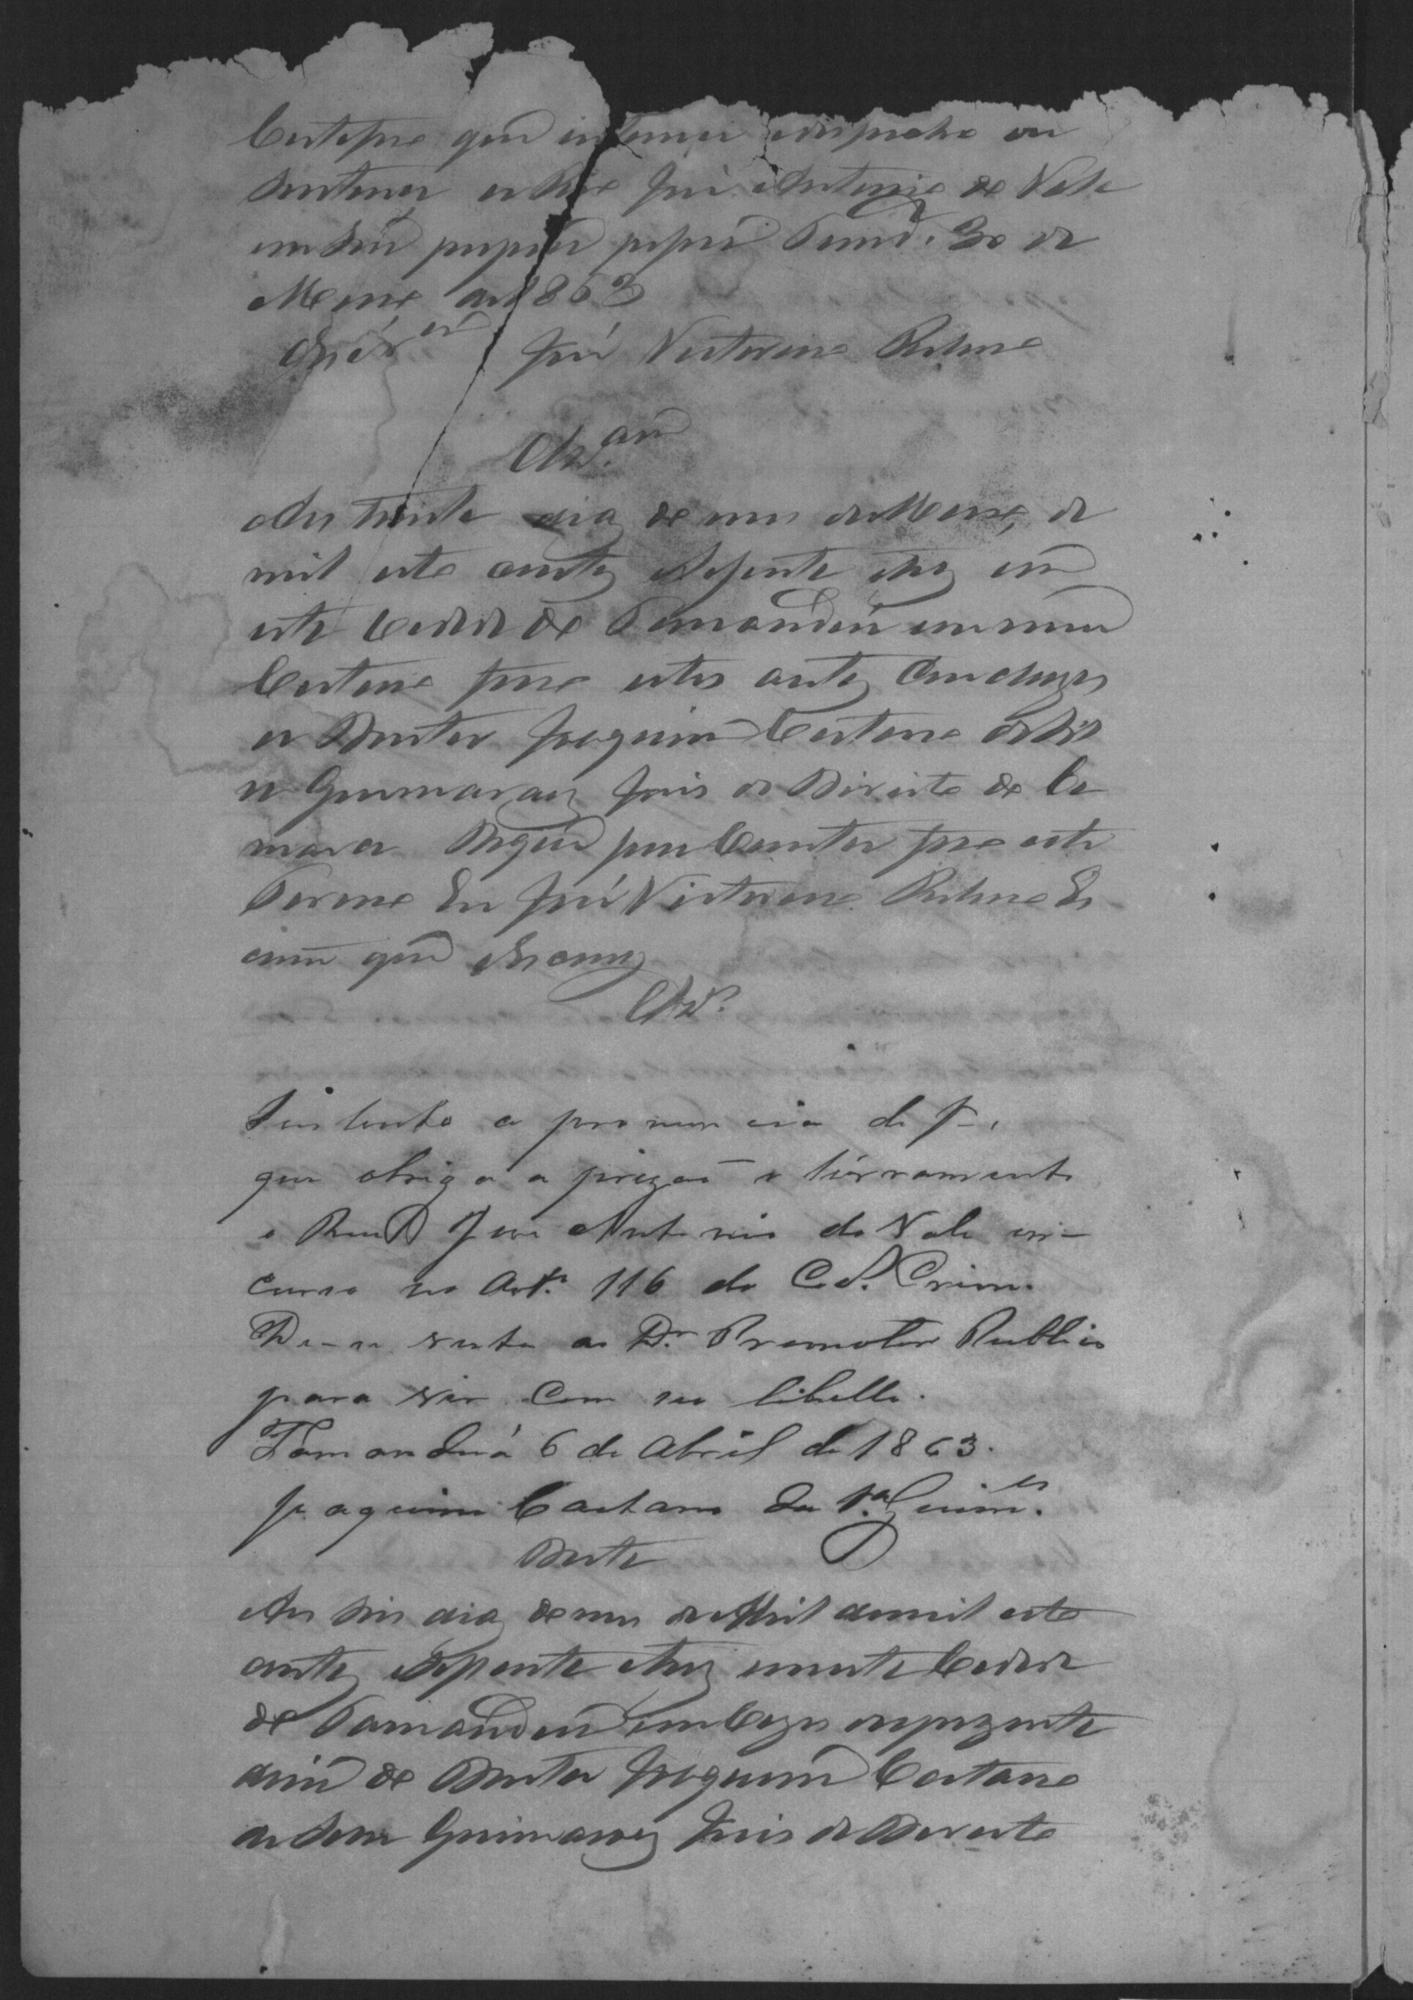 Certifico que intimei o despacho ou
sentença ao Reo José Antonio do Vale
em sua propria pessoa Tamd.ª 30 de
Março de 1863
O Escr.am José Victorino
Clz.am
Aos trinta dias do mes de Março de
mil oito centos e sesenta e tres em
esta Cidade de Tamanduá em meu
Cartorio faço estes autos Concluzos
ao Doutor Joaquim Caetano da Silva
Guimaraes Juis de Direito da Co
marca do que para Constar faço este
Termo Eu José Victorino Es
crivam que o escrevy
Clz.
Sustento a pronuncia de f-,
que obriga a prizaõ e livramento
o Reu José Antonio do Vale in-
curso no Art.º 116 do Cod. Crim.
De-se vista ao D.r Promotor Publico
para vir com seo libello.
Tamanduá 6 de Abril de 1863.
Joaquim Caetano da S.ª Guim.es
Data
Aos seis dias do mes de Abril de mil oito
centos e sesenta e tres em esta Cidade
de Tamanduá em Cazas da rezidencia
do Doutor Joaquim Caetano
da Silva Guimaraes Juis de Direito